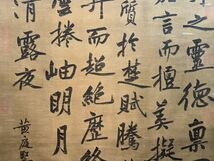 之靈德稟
嘉言而擅美擬
質於楚賦騰
而超絕塵
捲岫明月
清露夜
黃庭堅